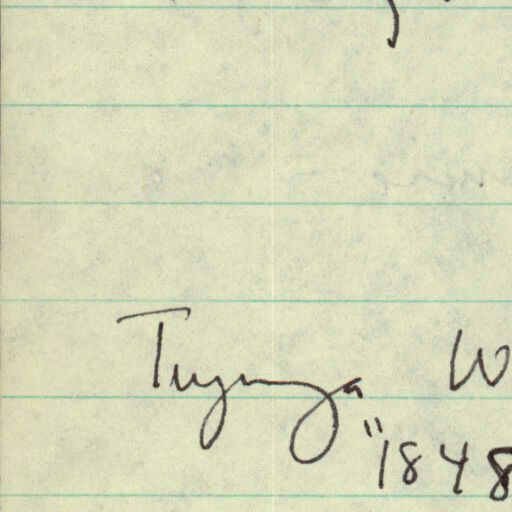 Tujunga W
"1848